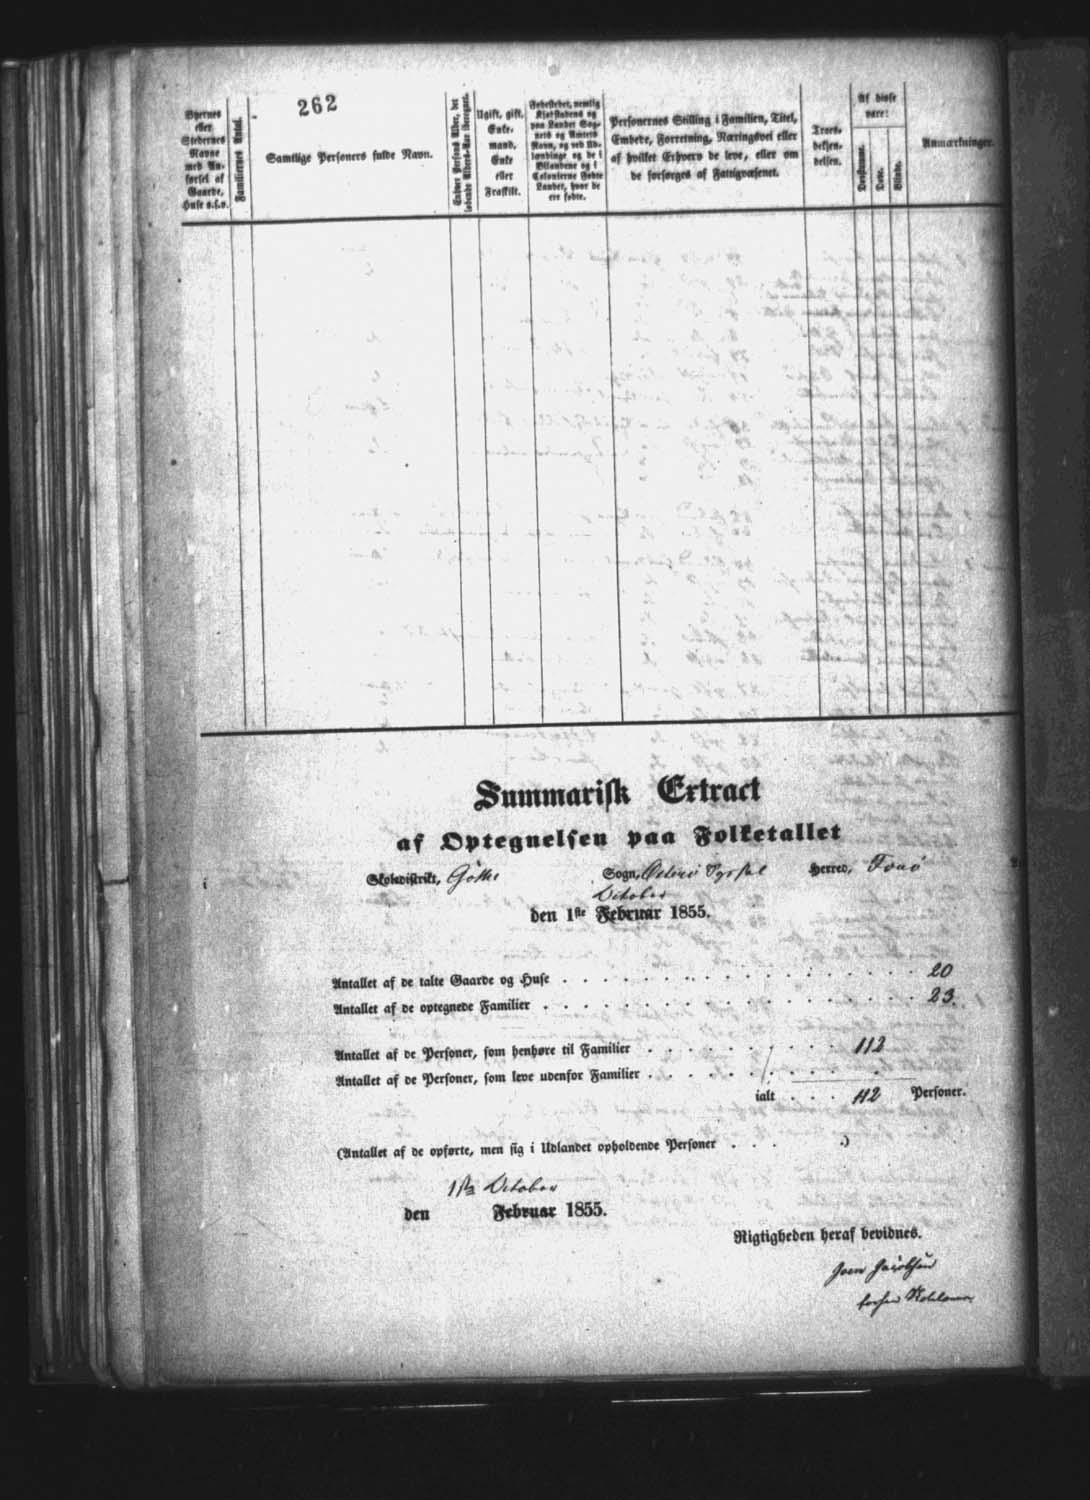 262
Byernes
eller
Stedernes
Navne
med An-
førsel af
Gaarde,
Huse o.s.v.
Familiernes Antal.
Samtlige Personers fulde Navn.
Enhver Persons Alder, det
løbende Alders-Aar iberegnet.
Ugift, gift,
Enke-
mand,
Enke
eller
Fraskilt.
Fødestedet, nemlig
Kjøbstadens og
paa Landet Sog-
nets og Amtets
Navn, og ved Ud-
lændinge og de i
Bilandene og i
Colonierne Fødte
Landet, hvor de
ere fødte.
Personernes Stilling i Familien, Titel,
Embede, Forretning, Næringsvei eller
af hvilket Erhverv de leve, eller om
de forsørges af Fattigvæsenet.
Troes-
bekjen-
delsen.
Af disse
vare:
Døvstumme.
Døve.
Blinde.
Anmærkninger.
Summarisk Extract
af Optegnelsen paa Folketallet
Skoledistrikt, Göthe Sogn, Herred,
October
den 1ste Februar 1855.
Antallet af de talte Gaarde og Huse . . . 20
Antallet af de optegnede Familier . . . 23.
Antallet af de Personer, som henhøre til Familier . . . 112
Antallet af de Personer, som leve udenfor Familier . . .
ialt . . . 112 Personer.
(Antallet af de opførte, men sig i Udlandet opholdende Personer . . . .)
1ste October
den Februar 1855.
Rigtigheden heraf bevidnes.
Joen Jacobsen